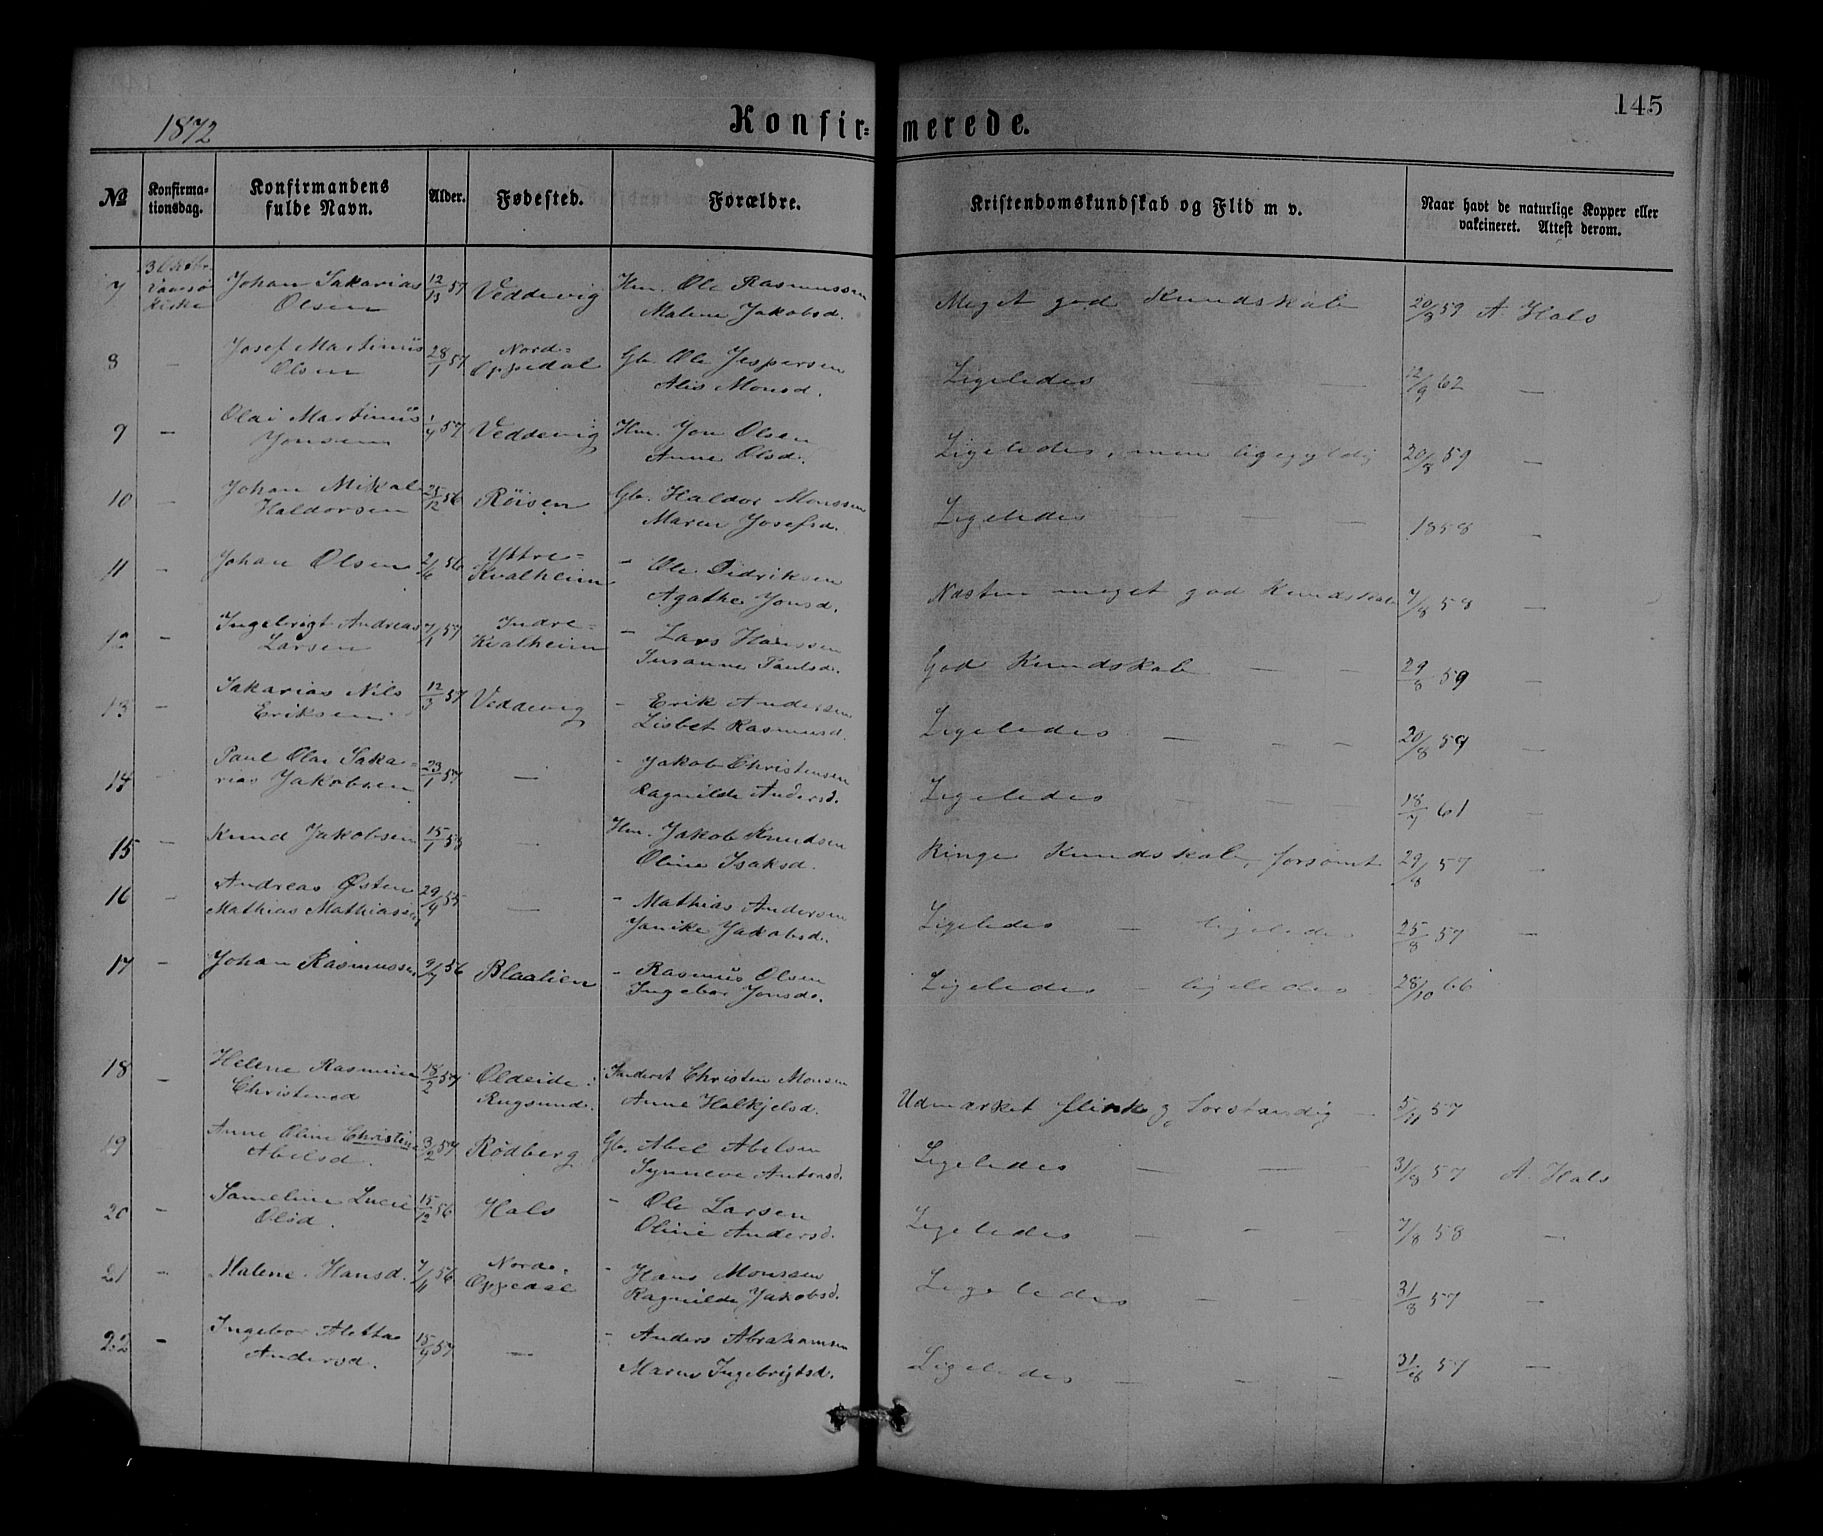 1872 Konfir= merede. 145
№ Konfirma- tionsdag. Konfirmandens fulde Navn. Alder. Fødested. Forældre. Kristendomskundskab og Flid m v. Naar havt de naturlige Kopper eller vakcineret. Attest derom.
7 3 Oktbr. Kirke Johan Sakarias Olsen 57 Veddevig Hm. Ole Rasmussen Malene Jakobsd. Meget god Kundskab 20/8 59 A. Hals
8 – Josef Martinus Olsen 28/1 57 Nord= Oppedal Gb. Ole Jespersen Alis Monsd. Ligeledes – – 12/9 62 –
9 – Olai Martinus Jonsen 57 Veddevig Hm. Jon Olsen Anne Olsd. Ligeledes, men ligegyldig 20/8 59 –
10 – Johan Mikal Haldorsen 25/12 56 Röisen Gb. Haldor Monssen Maren Josefsd. Ligeledes – – 1858 –
11 – Johan Olsen 2/6 56 Yttre= Kvalheim – Ole Didriksen Agathe Jonsd. Næsten meget god Kundskab 7/8 58 –
12 – Ingebrigt Andreas Larsen 7/1 57 Indre= Kvalheim – Lars Hanssen Susanne Paulsd. God Kundskab – – 29/8 59 –
13 – Sakarias Nils Eriksen 12/3 57 Veddevig – Erik Andersen Lisbet Rasmusd. Ligeledes – – – 20/8 59 –
14 – Paul Olai Saka- rias Jakobsen 23/1 57 – – Jakob Christensen Ragnilde Andersd. Ligeledes – – – 18/7 61 –
15 – Knud Jakobsen 15/1 53 – Hm. Jakob Knudsen Oline Isaksd. Ringe Kundskab, forsömt 29/8 57 –
16 – Andreas Østen Mathias Mathiassen 29/4 55 – – Mathias Andersen Janike Jakobsd. Ligeledes – ligeledes 25/8 57 –
17 – Johan Rasmussen 9/7 56 Blaalien – Rasmus Olsen Ingebor Jonsd. Ligeledes – ligeledes 28/10 66
18 – Helene Rasmine Christensd 18/2 57 Oldeide i Rugsund. Inderst Christen Monsen Anne Halkjelsd. Udmærket flink og forstandig – 5/11 57
19 – Anne Oline Christine Abelsd. 3/2 57 Rödberg Gb. Abel Abelsen Synneve Antonsd. Ligeledes – – – 31/8 57 A. Hals
20 – Sameline Lucie Olsd. 15/12 56 Hals – Ole Larsen Oline Andersd. Ligeledes – – 7/8 58 –
21 – Malene Hansd. 7/11 56 Norde. Oppedal – Hans Monsen Ragnilde Jakobsd. Ligeledes – – 31/8 57 –
22 – Ingebor Alettae Andersd. 57 – – Anders Abrahamsen Maren Ingebrigtsd. Ligeledes – – – 31/8 57 –